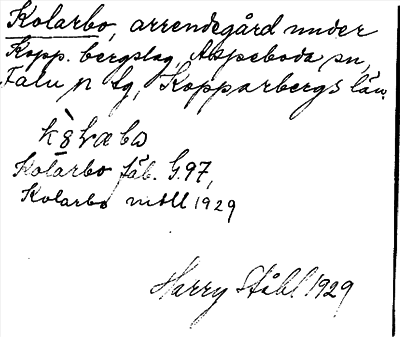 Kolarbo, arrendegård under
Kopp. bergslag, Aspeboda sn,
Falu n tg, Kopparbergs län.
Kolarbo fäb. G.97,
Kolarbo mtll 1929
Harry Ståhl 1929